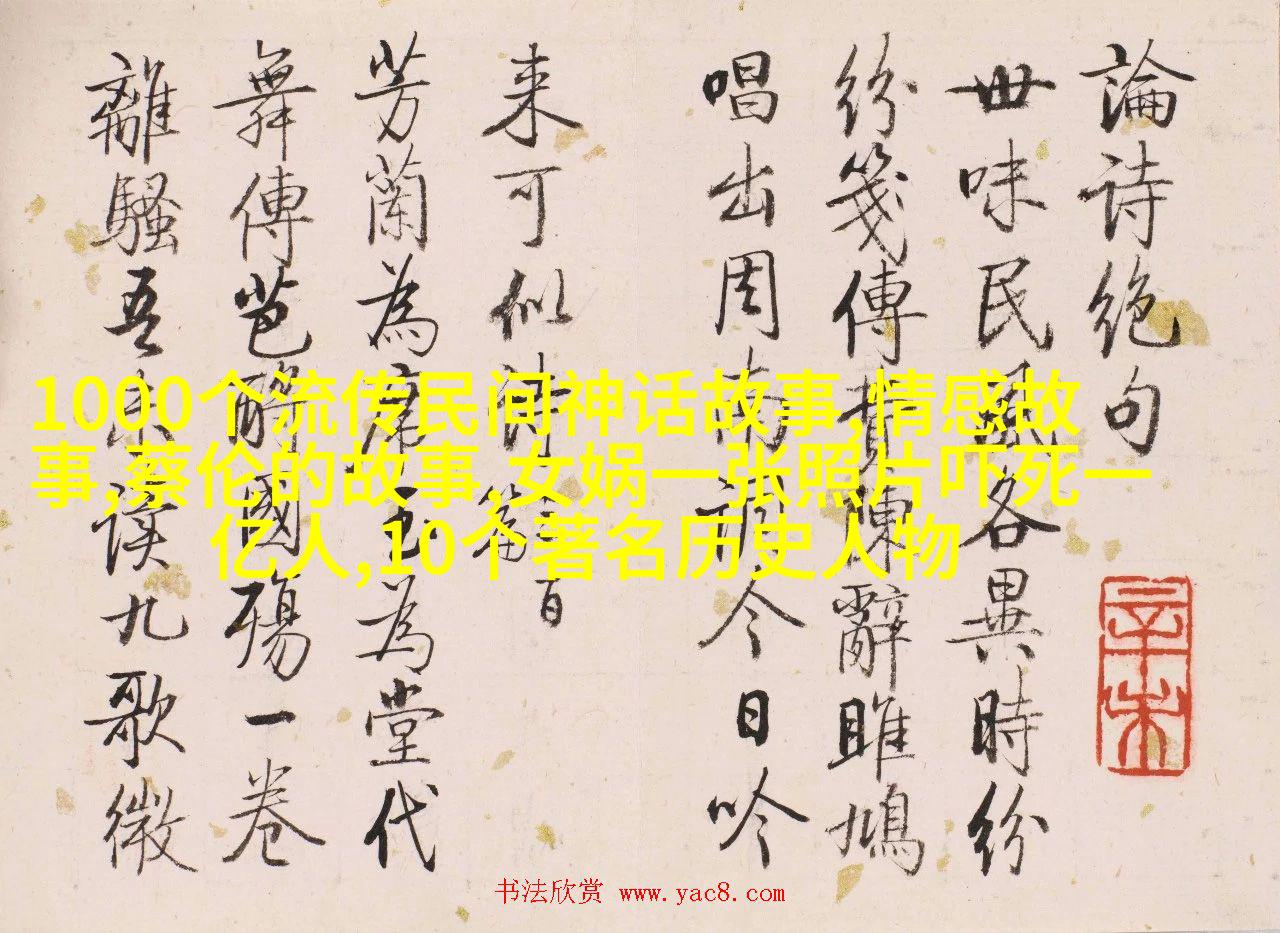 論詩絕句
世味民風各異時紛
紛箋傳賦陳辭雎鳩
唱出周南調今日吟
来可似清篇 百
芳蘭為席玉為堂代
舞傳芭醉國殤一卷
離騷吾未读九歌微
1000个流传民间神话故事,情感故
事,蔡伦的故事,女娲一张照片吓死一
亿人,10个著名历史人物
辛未
书法欣赏 www.yac8.com